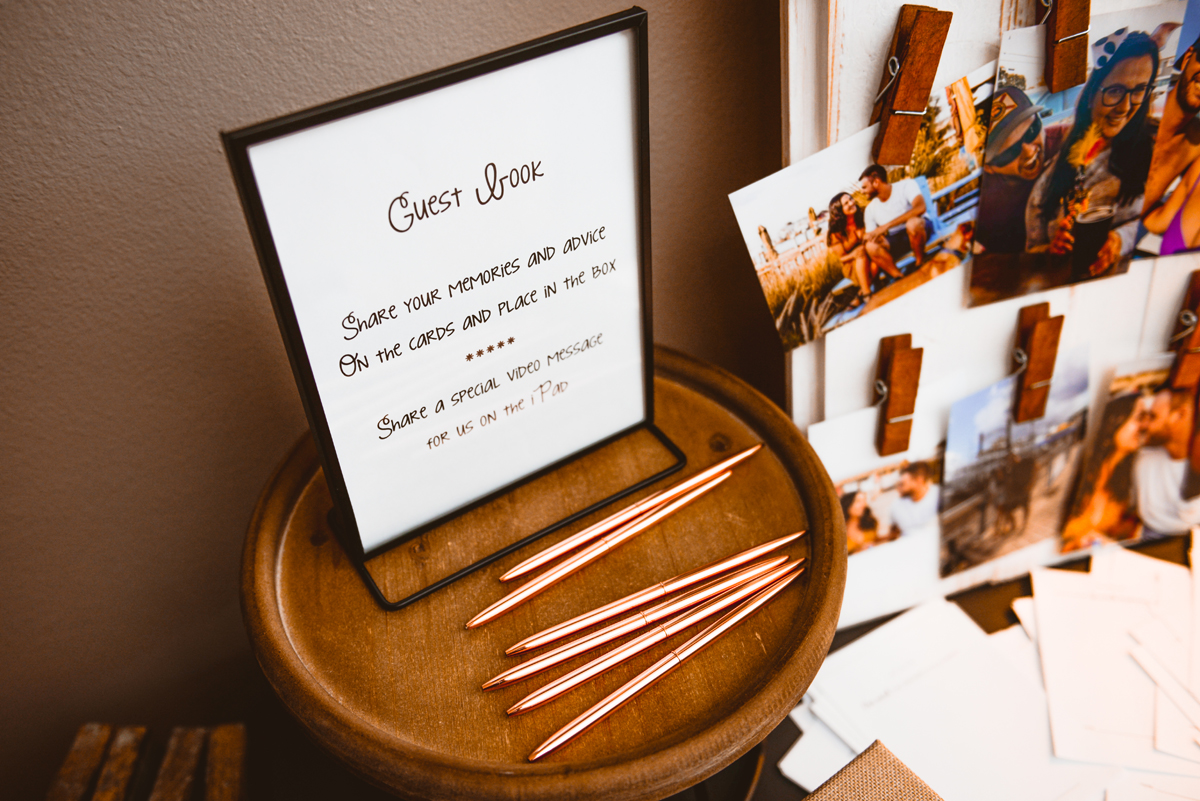 Guest Book
Share your memories and advice
On the cards and place in the box
*****
Share a special video message
for us on the iPad